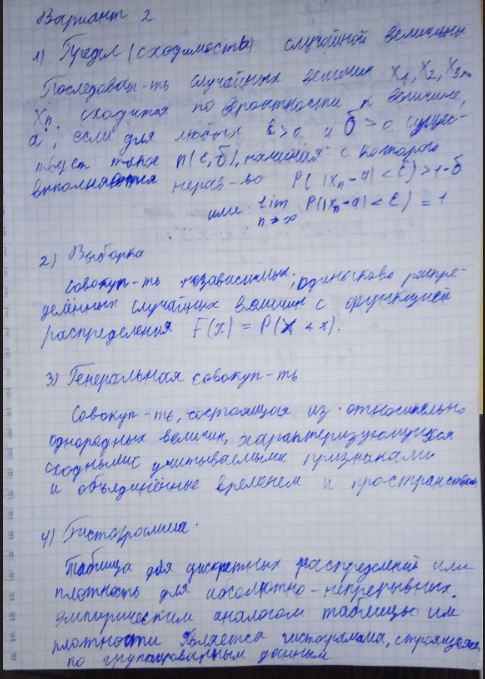 Вариант 2
1) Предел (сходимость) случайной величины
Последоват-ть случайных величин X1, X2, X3...
Xn, сходится по вероятности к величине,
a, если для любых ε>0 и δ>0 сущес-
твует такое n(ε,δ), начиная с которого
выполняется нерав-во P(|Xn-a|<ε)>1-δ
или lim P(|Xn-a|<ε)=1
n→∞
2) Выборка
Совокуп-ть независимых, одинаково распре-
делённых случайных величин с функцией
распределения F(x) = P(X<x).
3) Генеральная совокуп-ть
Совокуп-ть, состоящая из относительно
однородных величин, характеризующихся
сходными учитываемыми признаками
и объединённые временем и пространством
4) Гистограмма.
Таблица для дискретных распределений или
плотность для абсолютно-непрерывных.
Эмпирическим аналогом таблицы или
плотности является гистограмма, строящаяся
по группированным данным